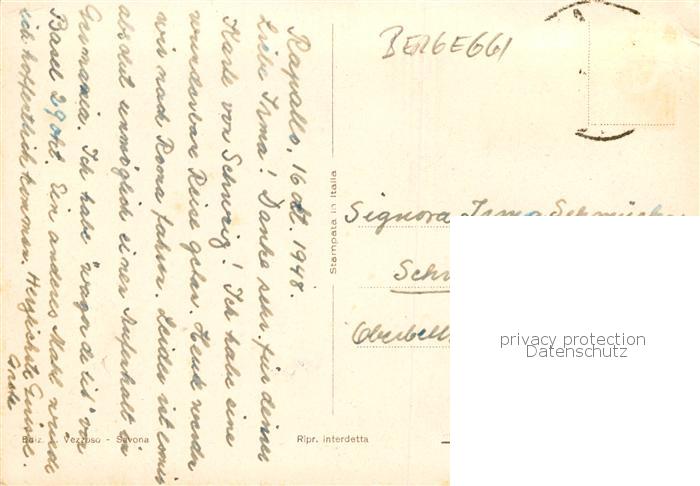 Rapallo, 16 Okt. 1948.
Liebe Irma! Danke sehr für deine
Karte von Schweiz! Ich habe eine
wunderbare Reise gehat. Heute werde
wir nach Roma fahren. Leider ist es mir
absolut unmöglich einen Aufenthalt in
Germania. Ich habe "wagon de lits" von
Basel 29 Okt. Ein anderes Mahl würde
ich hoffentlich kommen. Herzlichste Grüsse.
Grete
BERGEGGI
Signora Irma
Sch
Oberbell
Stampata in Italia
Ediz. Vezzoso - Savona
Ripr. interdetta
privacy protection
Datenschutz